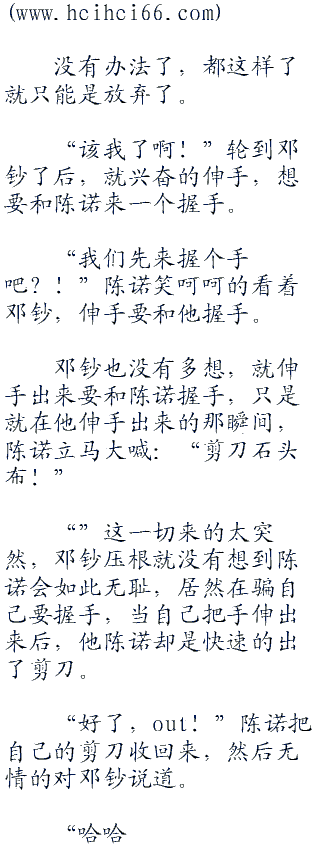 (www.hcihci66.com)
没有办法了，都这样了
就只能是放弃了。
“该我了啊！”轮到邓
钞了后，就兴奋的伸手，想
要和陈诺来一个握手。
“我们先来握个手
吧？！”陈诺笑呵呵的看着
邓钞，伸手要和他握手。
邓钞也没有多想，就伸
手出来要和陈诺握手，只是
就在他伸手出来的那瞬间，
陈诺立马大喊：“剪刀石头
布！”
“”这一切来的太突
然，邓钞压根就没有想到陈
诺会如此无耻，居然在骗自
己要握手，当自己把手伸出
来后，他陈诺却是快速的出
了剪刀。
“好了，out！”陈诺把
自己的剪刀收回来，然后无
情的对邓钞说道。
“哈哈